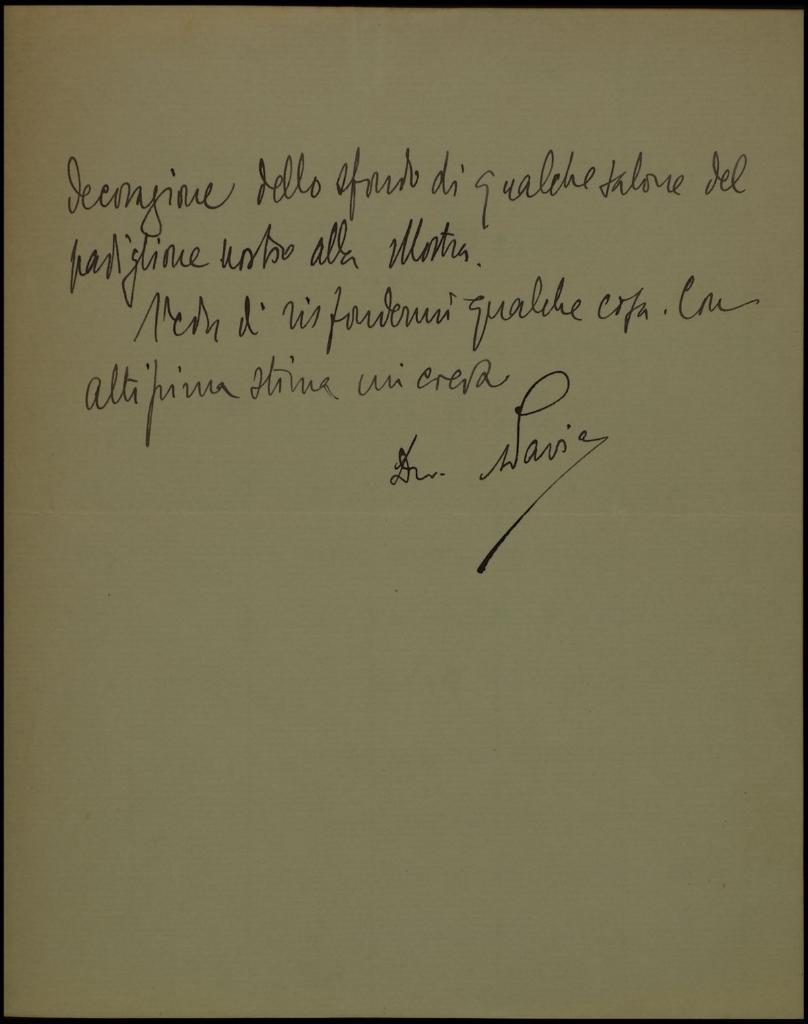 decorazione dello sfondo di qualche salone del
padiglione nostro alla Mostra.
Veda di rispondermi qualche cosa. Con
altissima stima mi creda